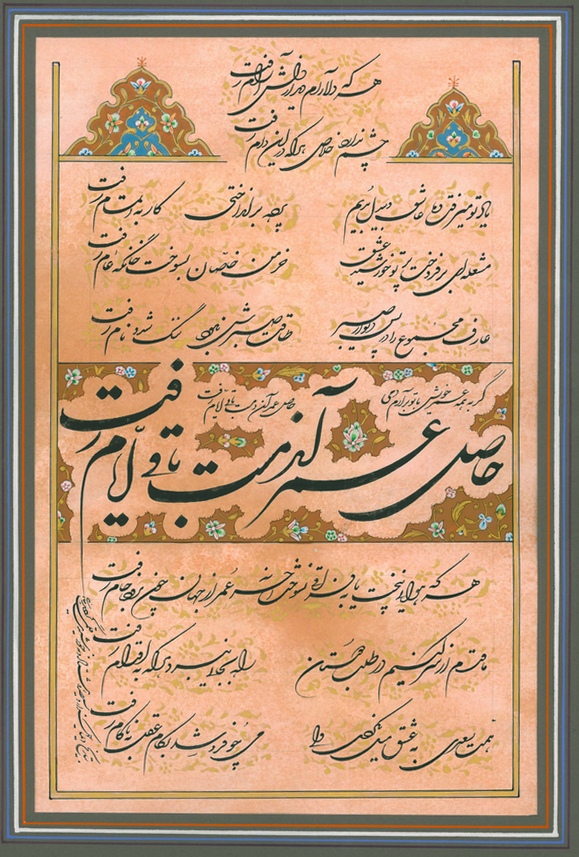 هر که دلارام دید از دلش آرام رفت
چشم ندارد خلاص هر که در این دام رفت
یاد تو میرفت و ما عاشق و بیدل بدیم پرده برانداختی کار به اتمام رفت
مشعله‌ای بر فروخت پرتو خورشید عشق خرمن خاصان بسوخت خانگه عام رفت
عارف مجموع را در پس دیوار صبر طاقت صبرش نبود ننگ شد و نام رفت
گر به همه عمر خویش با تو برآرم دمی حاصل عمر آندمست باقی ایام رفت
حاصل عمر آندمست باقی ایام رفت
هر که هوایی نپخت یا به فراقی نسوخت آخر عمر از جهان چون برود خام رفت
ما قدم از سر کنیم در طلب دوستان راه بجایی نبرد هر که به اقدام رفت
همت سعدی به عشق میل نکردی ولی می چو فرو شد بکام عقل به ناکام رفت